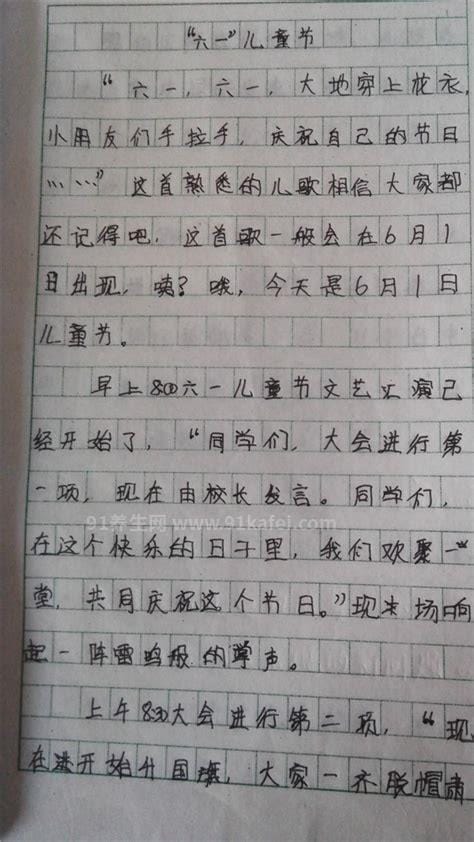 “六一”儿童节
“六一,六一,大地穿上花衣,
小朋友们手拉手,庆祝自己的节日
……”这首熟悉的儿歌相信大家都
还记得吧,这首歌一般会在6月1
日出现,咦?哦,今天是6月1日
儿童节。
早上8:00六一儿童节文艺汇演已
经开始了,“同学们,大会进行第
一项,现在由校长发言。同学们,
在这个快乐的日子里,我们欢聚一
堂,共同庆祝这个节日。”现在场响
起一阵雷鸣般的掌声。
上午8:30大会进行第二项,“现
在开始升国旗,大家一齐脱帽肃
91养生网 www.91kafei.com